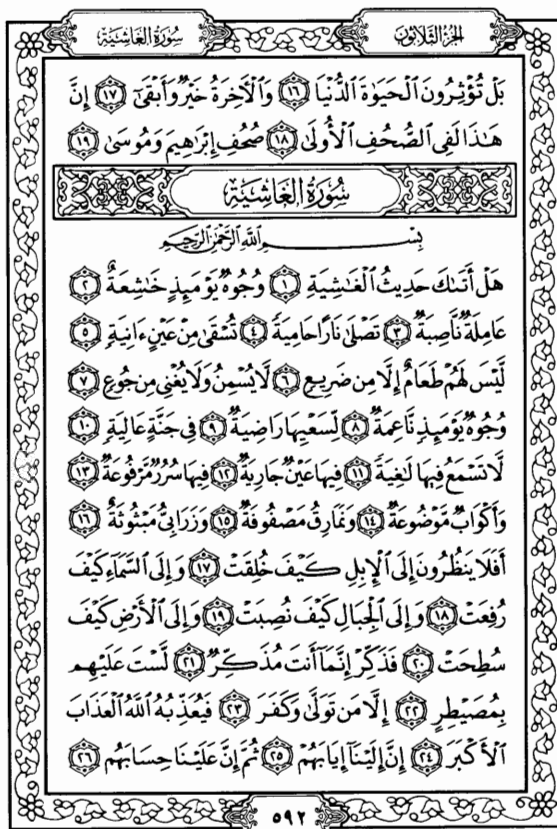 سُورَةُ الغَاشِيَةِ الجُزْءُ الثَّلَاثُونَ
بَلْ تُؤْثِرُونَ ٱلْحَيَوٰةَ ٱلدُّنْيَا ١٦ وَٱلْأَخِرَةُ خَيْرٌ وَأَبْقَىٰٓ ١٧ إِنَّ
هَٰذَا لَفِى ٱلصُّحُفِ ٱلْأُولَىٰ ١٨ صُحُفِ إِبْرَٰهِيمَ وَمُوسَىٰ ١٩
سُورَةُ الغَاشِيَةِ
بِسْمِ ٱللَّهِ ٱلرَّحْمَٰنِ ٱلرَّحِيمِ
هَلْ أَتَىٰكَ حَدِيثُ ٱلْغَٰشِيَةِ ١ وُجُوهٌ يَوْمَئِذٍ خَٰشِعَةٌ ٢
عَامِلَةٌ نَّاصِبَةٌ ٣ تَصْلَىٰ نَارًا حَامِيَةً ٤ تُسْقَىٰ مِنْ عَيْنٍ ءَانِيَةٍ ٥
لَّيْسَ لَهُمْ طَعَامٌ إِلَّا مِن ضَرِيعٍ ٦ لَّا يُسْمِنُ وَلَا يُغْنِى مِن جُوعٍ ٧
وُجُوهٌ يَوْمَئِذٍ نَّاعِمَةٌ ٨ لِّسَعْيِهَا رَاضِيَةٌ ٩ فِى جَنَّةٍ عَالِيَةٍ ١٠
لَّا تَسْمَعُ فِيهَا لَٰغِيَةً ١١ فِيهَا عَيْنٌ جَارِيَةٌ ١٢ فِيهَا سُرُرٌ مَّرْفُوعَةٌ ١٣
وَأَكْوَابٌ مَّوْضُوعَةٌ ١٤ وَنَمَارِقُ مَصْفُوفَةٌ ١٥ وَزَرَابِىُّ مَبْثُوثَةٌ ١٦
أَفَلَا يَنظُرُونَ إِلَى ٱلْإِبِلِ كَيْفَ خُلِقَتْ ١٧ وَإِلَى ٱلسَّمَآءِ كَيْفَ
رُفِعَتْ ١٨ وَإِلَى ٱلْجِبَالِ كَيْفَ نُصِبَتْ ١٩ وَإِلَى ٱلْأَرْضِ كَيْفَ
سُطِحَتْ ٢٠ فَذَكِّرْ إِنَّمَآ أَنتَ مُذَكِّرٌ ٢١ لَّسْتَ عَلَيْهِم
بِمُصَيْطِرٍ ٢٢ إِلَّا مَن تَوَلَّىٰ وَكَفَرَ ٢٣ فَيُعَذِّبُهُ ٱللَّهُ ٱلْعَذَابَ
ٱلْأَكْبَرَ ٢٤ إِنَّ إِلَيْنَآ إِيَابَهُمْ ٢٥ ثُمَّ إِنَّ عَلَيْنَا حِسَابَهُم ٢٦
٥٩٢